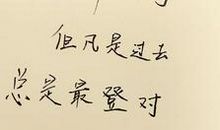 但凡是过去
总是最登对